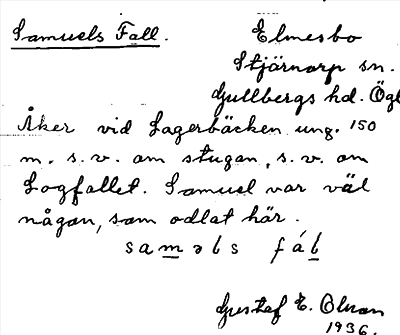 Samuels Fall.
Elmesbo
Stjärnorp sn.
Gullbergs hd. Ögl
Åker vid Lagerbäcken ung. 150
m. s.v. om stugan, s.v. om
Logfallet. Samuel var väl
någon, som odlat här.
saməls fál
Gustaf E. Olson
1936.